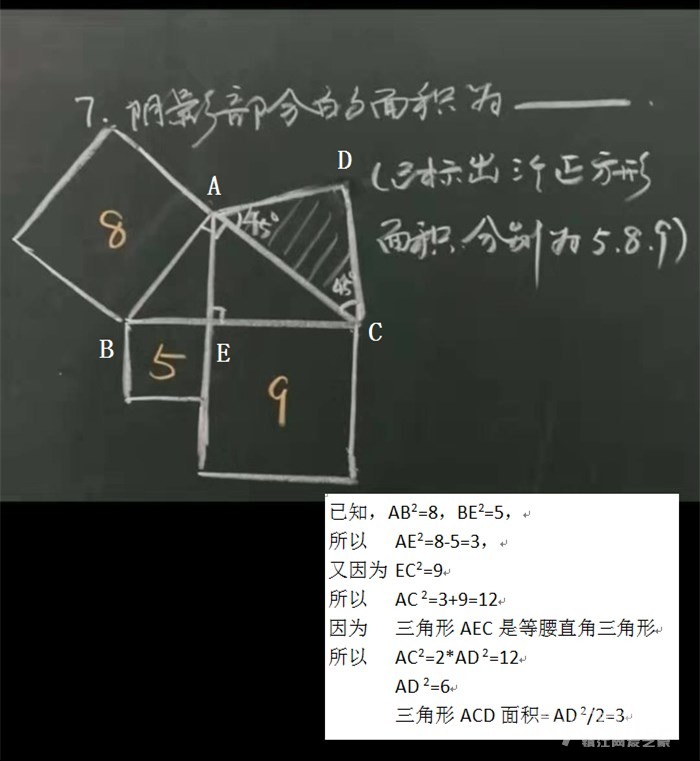 7. 阴影部分的面积为 ______.
(已标出三个正方形
面积分别为 5.8.9)
A
D
8
45°
45°
B
5
E
C
9
已知，AB²=8，BE²=5，
所以 AE²=8-5=3，
又因为 EC²=9
所以 AC²=3+9=12
因为 三角形 AEC 是等腰直角三角形
所以 AC²=2*AD²=12
AD²=6
三角形 ACD 面积=AD²/2=3
镇江网友之家